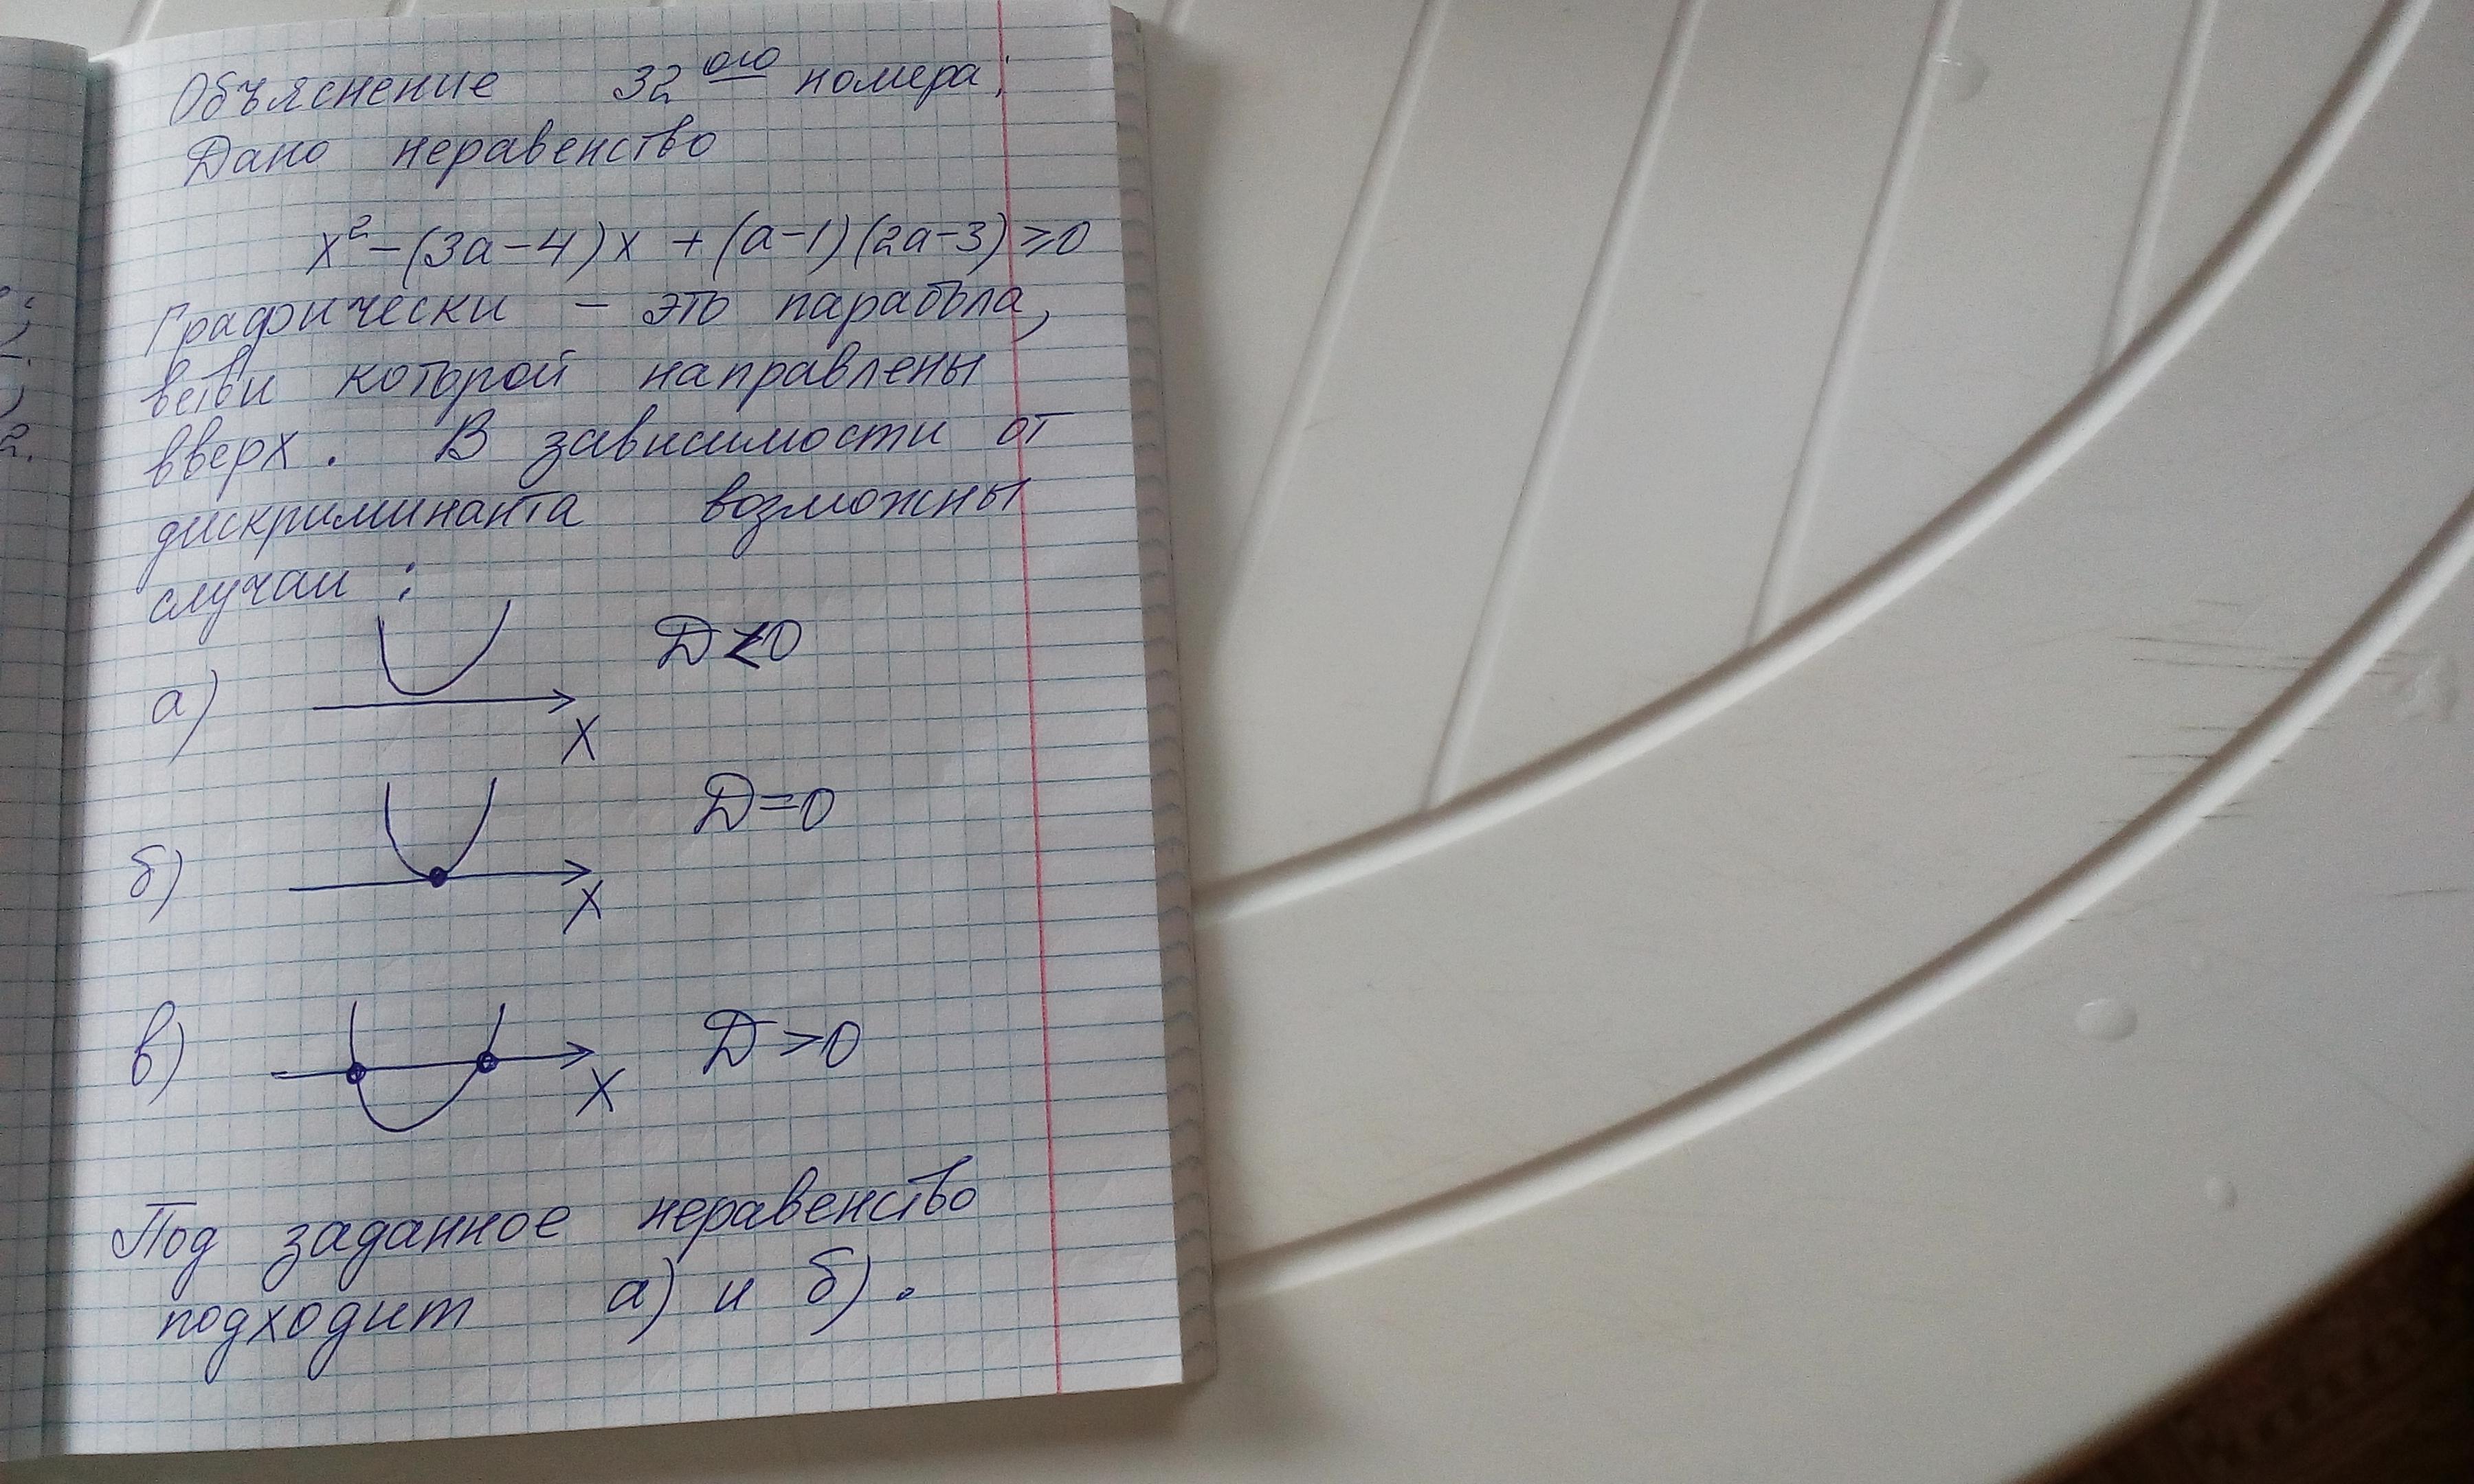 Объяснение 32 ого номера:
Дано неравенство
x² - (3a - 4)x + (a - 1)(2a - 3) ⩾ 0
Графически - это парабола,
ветви которой направлены
вверх. В зависимости от
дискриминанта возможны
случаи:
а) D < 0
x
б) D = 0
x
в) D > 0
x
Под заданное неравенство
подходит а) и б).